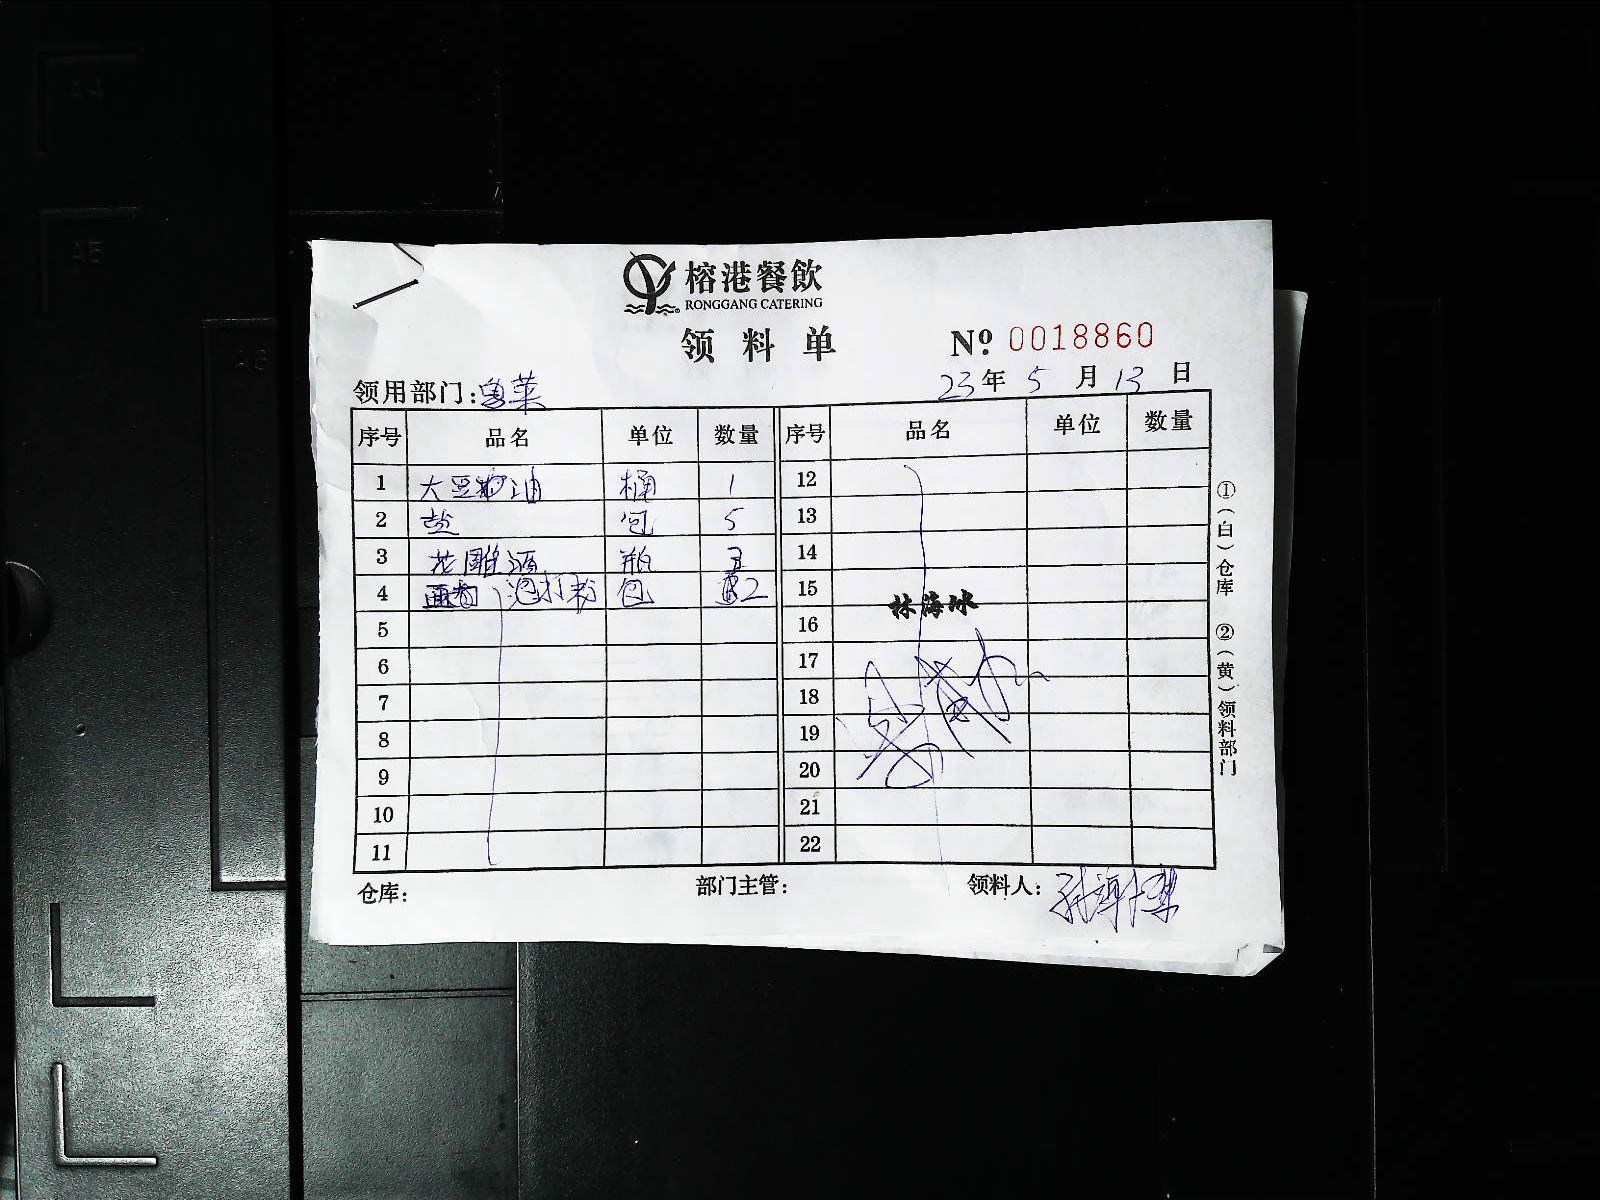 榕港餐飲
RONGGANG CATERING
领料单
Nº 0018860
领用部门: 粤菜 23年5月13日
序号 品名 单位 数量 序号 品名 单位 数量
1 大豆油 桶 1 12
2 盐 包 5 13
3 花雕酒 瓶 3 14
4 泡打粉 包 2 15
林海冰
5 16
6 17
7 18
8 19
9 20
10 21
11 22
仓库: 部门主管: 领料人:
①(白)仓库 ②(黄)领料部门
A4
A5
A6